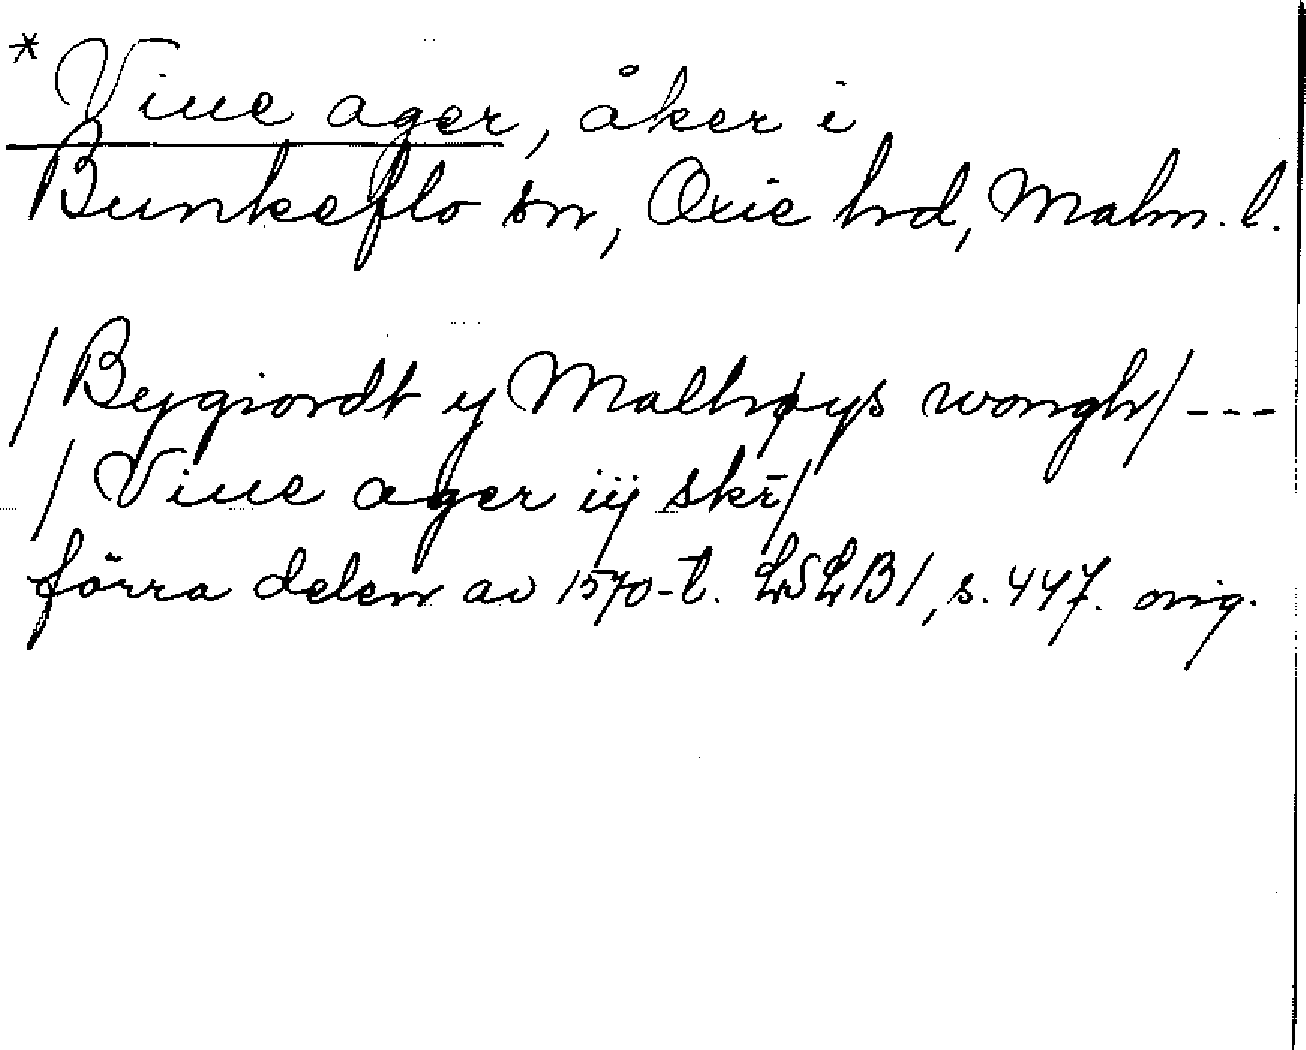 * Viue ager, åker i
Bunkeflo sn, Oxie hrd, Malm. l.
/Bygiordt y Malhøys wongh/ ---
/ Viue ager iij skr̄/
förra delen av 1570-t. LSLB1, s. 447. orig.